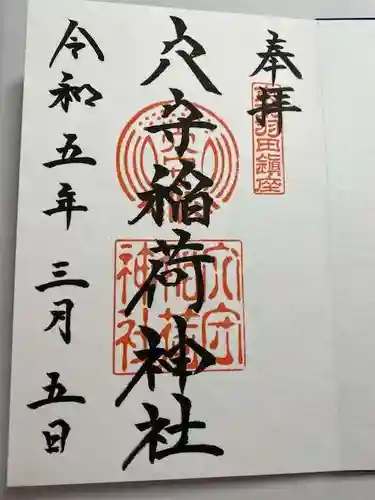 奉拝
羽田鎮座
穴守稲荷神社
穴守稲荷神社
令和五年三月五日